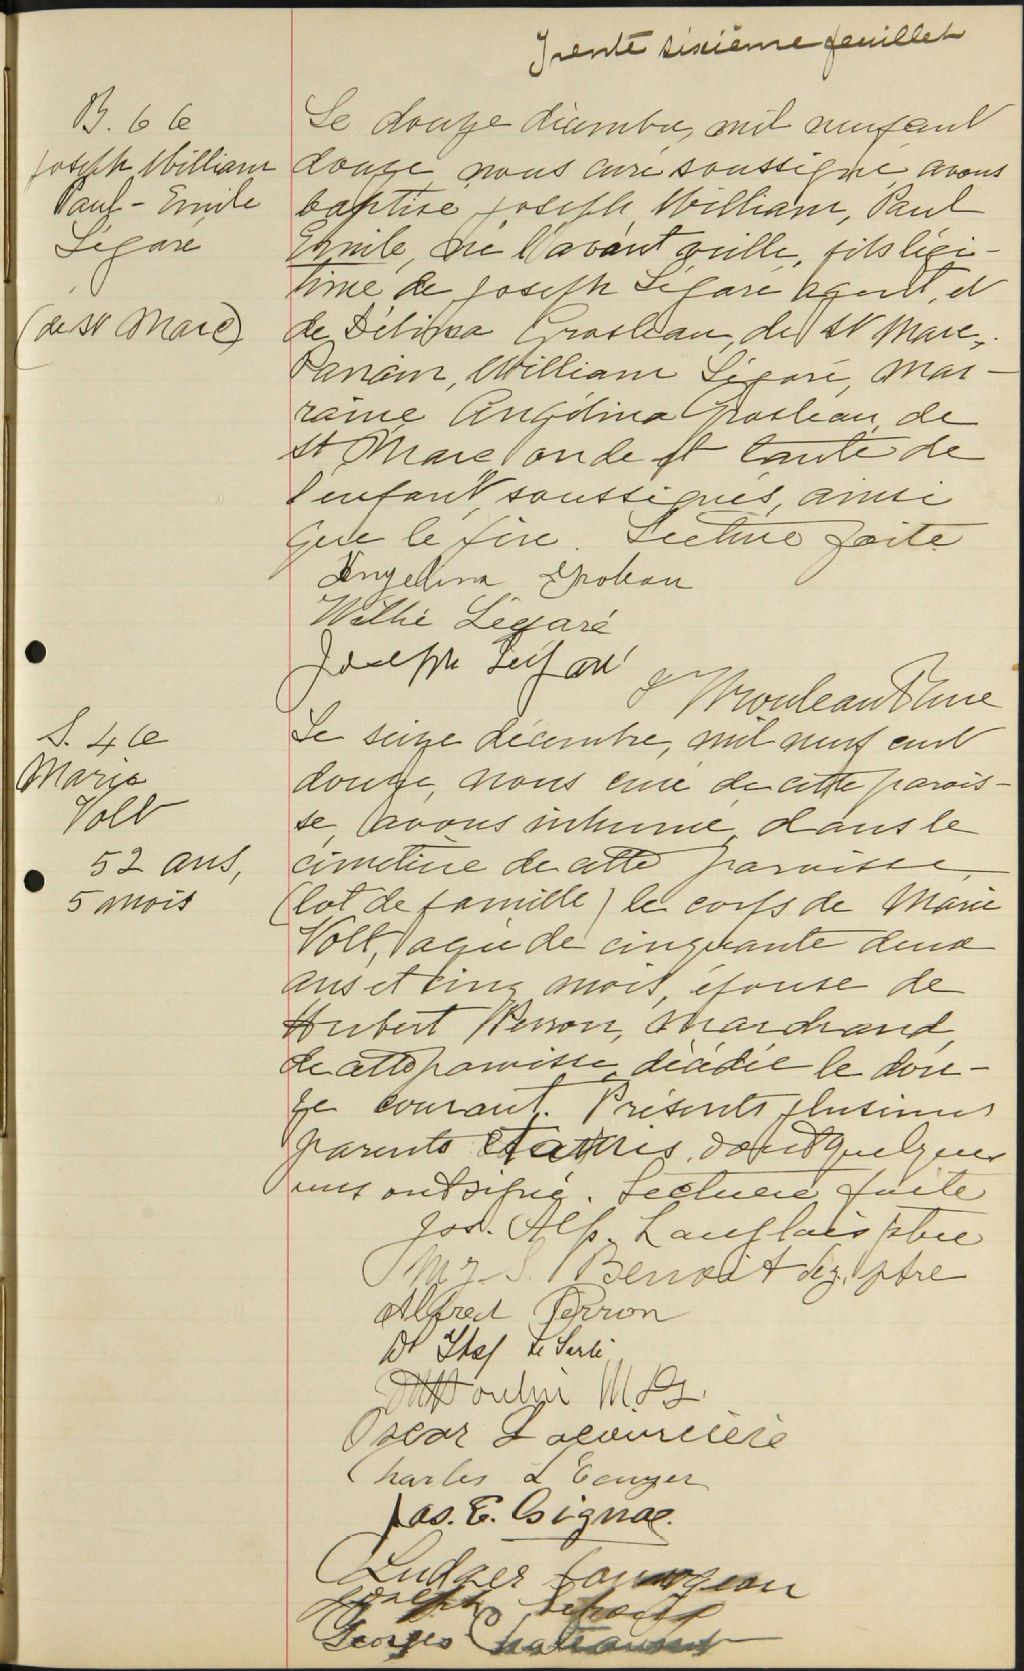 Trente sixième feuillet
B. 66
Joseph William
Paul-Emile
Légaré
(de St Marc)
Le douze décembre, mil neuf cent
douze, nous curé soussigné, avons
baptisé Joseph William, Paul
Emile, né l'avant veille, fils légi-
time de Joseph Légaré agent, et
de Délima Grosleau, de St Marc,.
Parrain, William Légaré, mar-
raine Angélina Grosleau, de
St Marc oncle et tante de
l'enfant, soussignés, ainsi
que le père. Lecture faite
Angelina Groleau
Willie Légaré
Joseph Légaré
Rouleau Ptre
S. 46
Marie
Volt
52 ans,
5 mois
Le seize décembre, mil neuf cent
douze, nous curé de cette parois-
se, avons inhumé, dans le
cimetière de cette paroisse,
(lot de famille) le corps de Marie
Volt, agée de cinquante deux
ans et cinq mois, épouse de
Hubert Perron, marchand,
de cette paroisse, décédée le dou-
ze courant. Présents plusieurs
parents et amis, dont quelques
uns ont signé. Lecture faite
Jos. Alp. Langlois ptre
Benoit ptre
Alfred Perron
Dr
Oscar
Charles
Jos. E. Gignac.
Ludger
Joseph
Georges